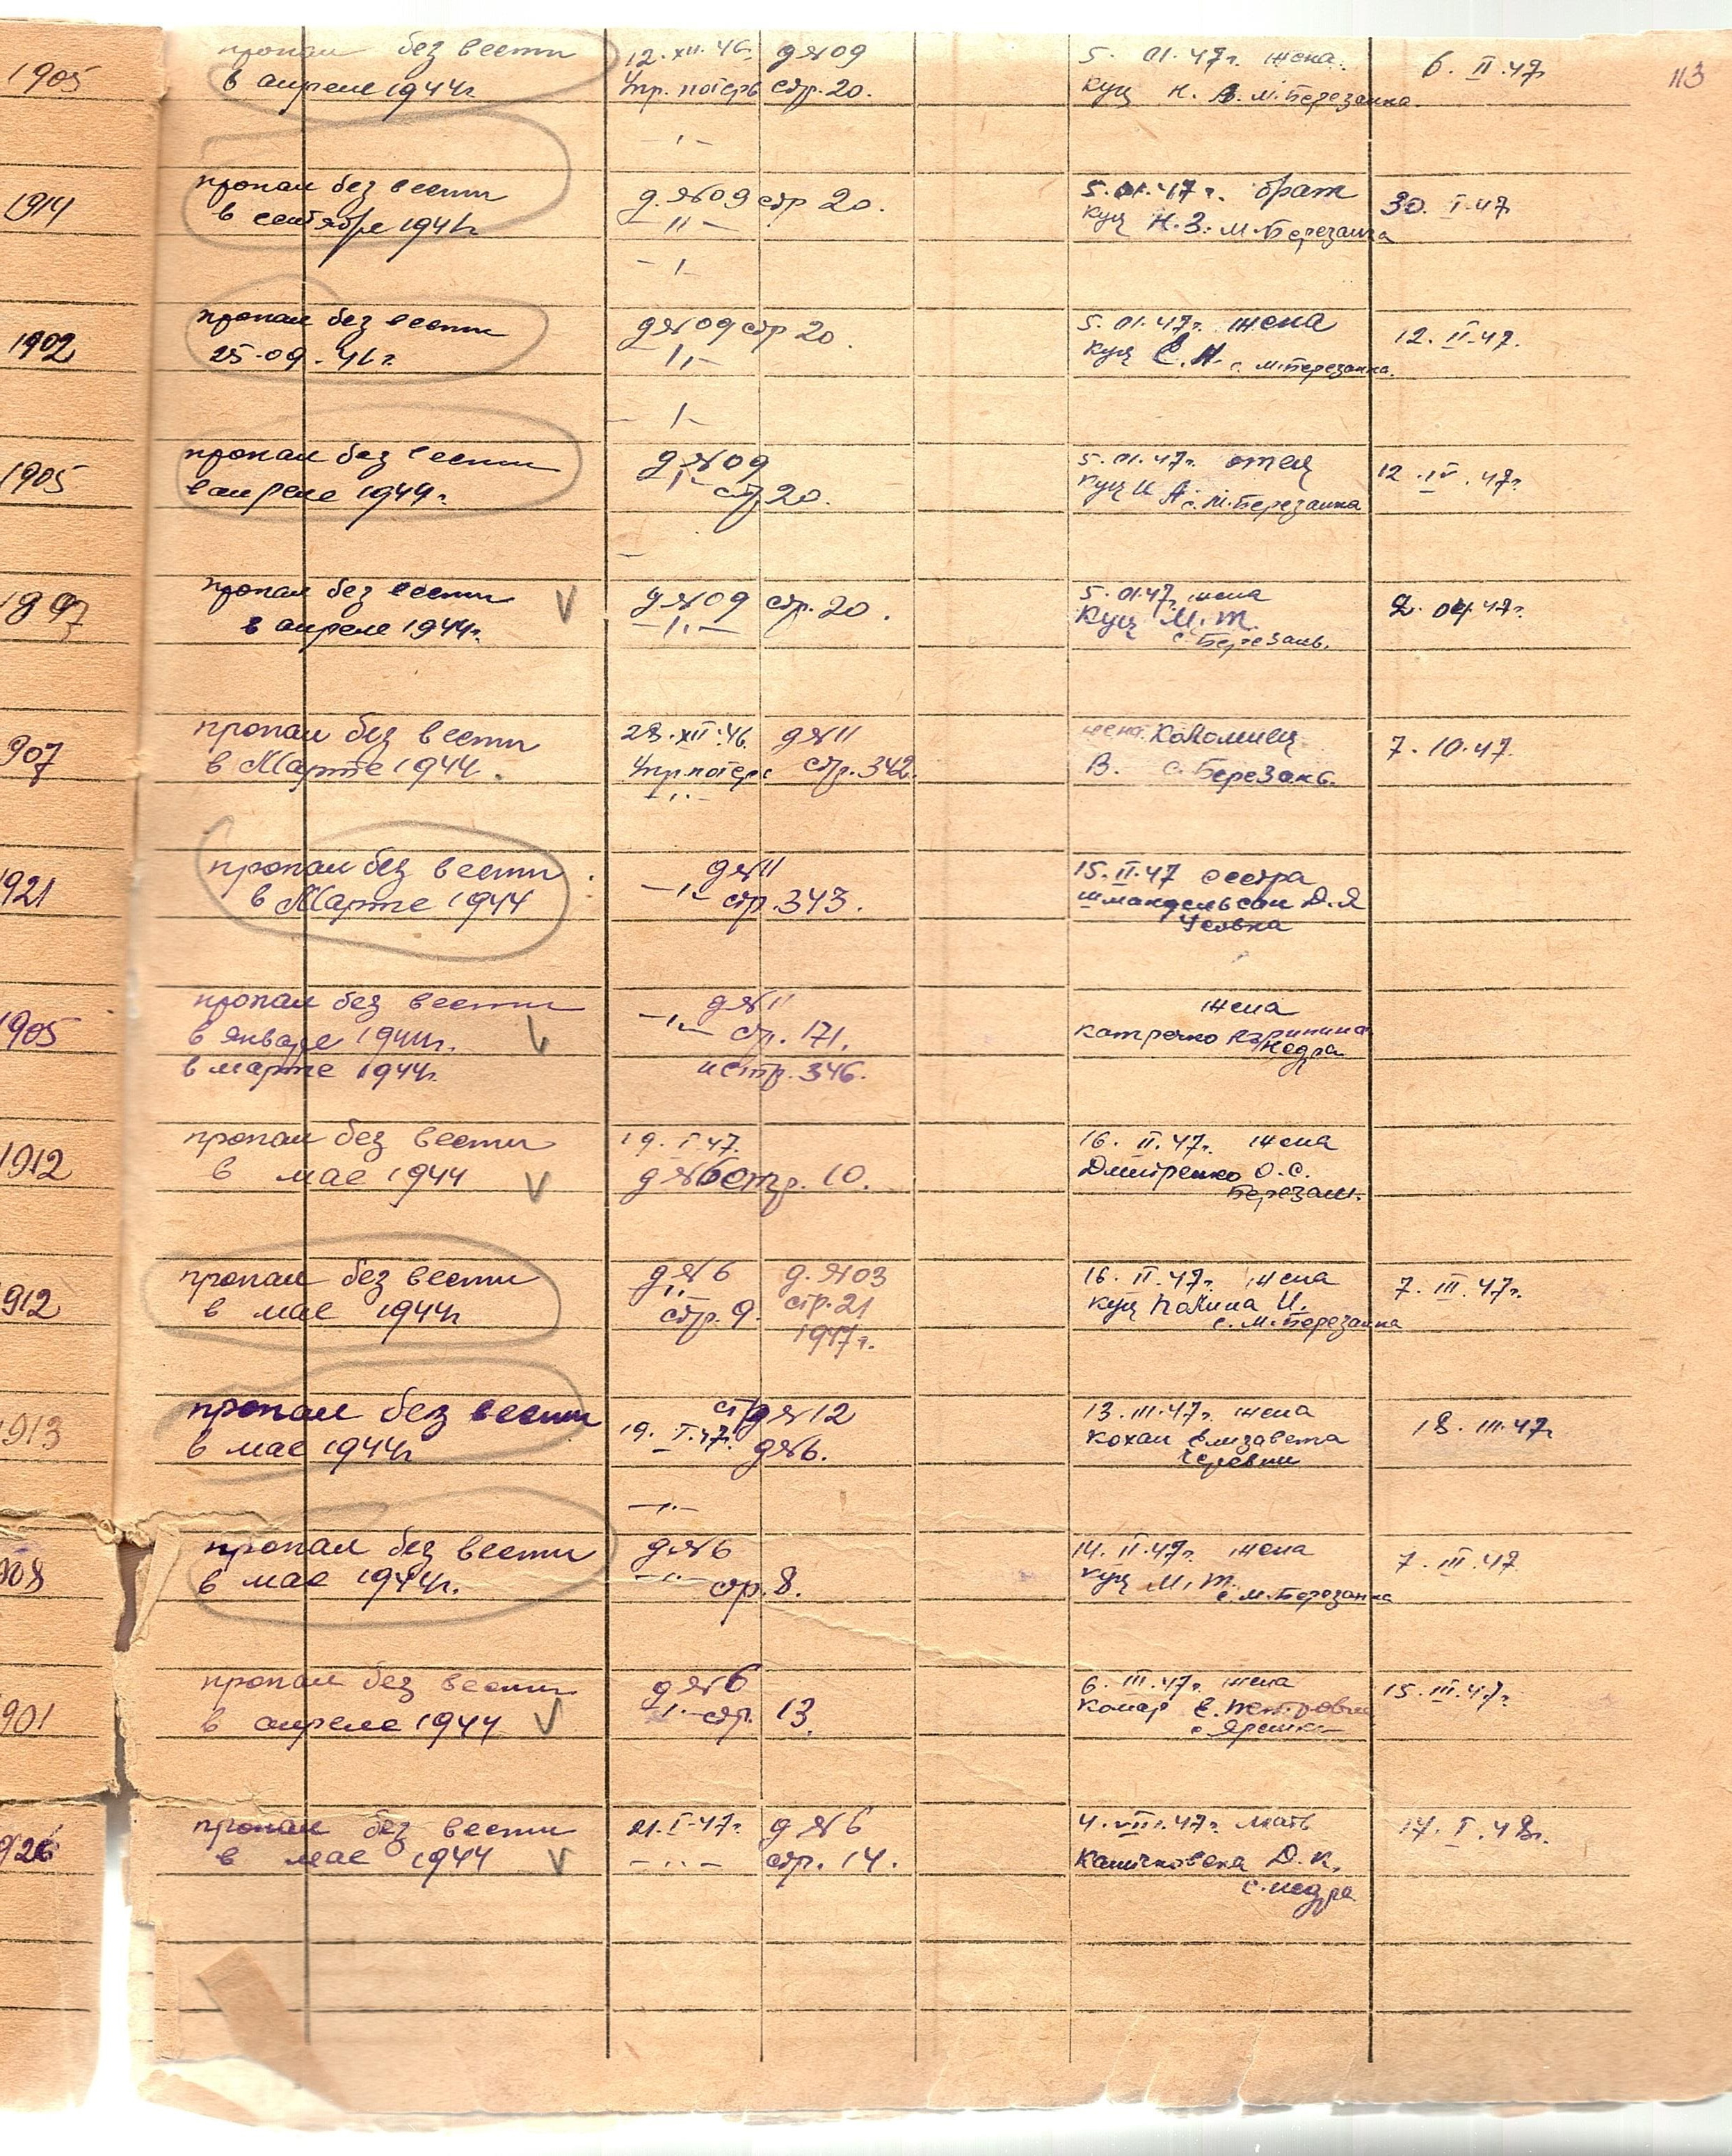 1905 пропал без вести 12.XII.46. д №09 5. 01.47г. жена. 6. II.47г 113
в апреле 1944г. Упр. потерь стр. 20. Куц Н. В. м.Березанка.
—"—
1914 пропал без вести д. №09 стр 20. 5.01.47г. брат 30. I.47
в сентябре 1941г. —"— Куц Н.З. м.Березанка
—"—
1902 пропал без вести д №09 стр 20. 5.01.47г. жена 12. II.47.
25.09.41г. —"— Куц Е.Н. с. м.Березанка.
—"—
1905 пропал без вести д №09 5.01.47г. отец 12.IV.47г.
в апреле 1944г. —"— стр 20. Куц И А. с.М.Березанка
1897 пропал без вести V д №09 стр. 20. 5.01.47г. жена 2.04.47г.
в апреле 1944г. —"— Куц М.Т.
с.Березань.
907 пропал без вести 28.XII.46. д №11 жена Коломиец 7.10.47.
в Марте 1944. Упр.потерь стр.342. В. с.Березань.
—"—
921 пропал без вести д №11 15.II.47 сестра
в Марте 1944 —"— стр.343. Д.Я
1905 пропал без вести д №11 жена
в январе 1944г. V —"— стр. 171. Катречко
в марте 1944г. и стр. 346. Недра
1912 пропал без вести 19.I.47. 16. II.47г. жена
в мае 1944 V д №6 стр. 10. Дмитренко О.С.
Березань.
912 пропал без вести д №6 д. №03 16. II.47г. жена 7. III.47г.
в мае 1944г —"— стр. 9. стр.21 Куц Полина И.
1947г. с.М.Березанка
1913 пропал без вести д №12 13.III.47г. жена 18.III.47г
в мае 1944г 19.I.47г. д №6. Кохан Елизавета
—"—
908 пропал без вести д №6 14.II.47г. жена 7.III.47
в мае 1944г. —"— стр.8. Куц М.Т.
с.М.Березанка
901 пропал без вести д №6 6. III.47г. жена 15.III.47г.
в апреле 1944 V —"— стр. 13. Комар Е. Петровна
с.Ярешки
926 пропал без вести 21.I.47г. д №6 4.VII.47г. мать 17.I.48г.
в мае 1944 V —"— стр. 14. Д.К.
с.Недра